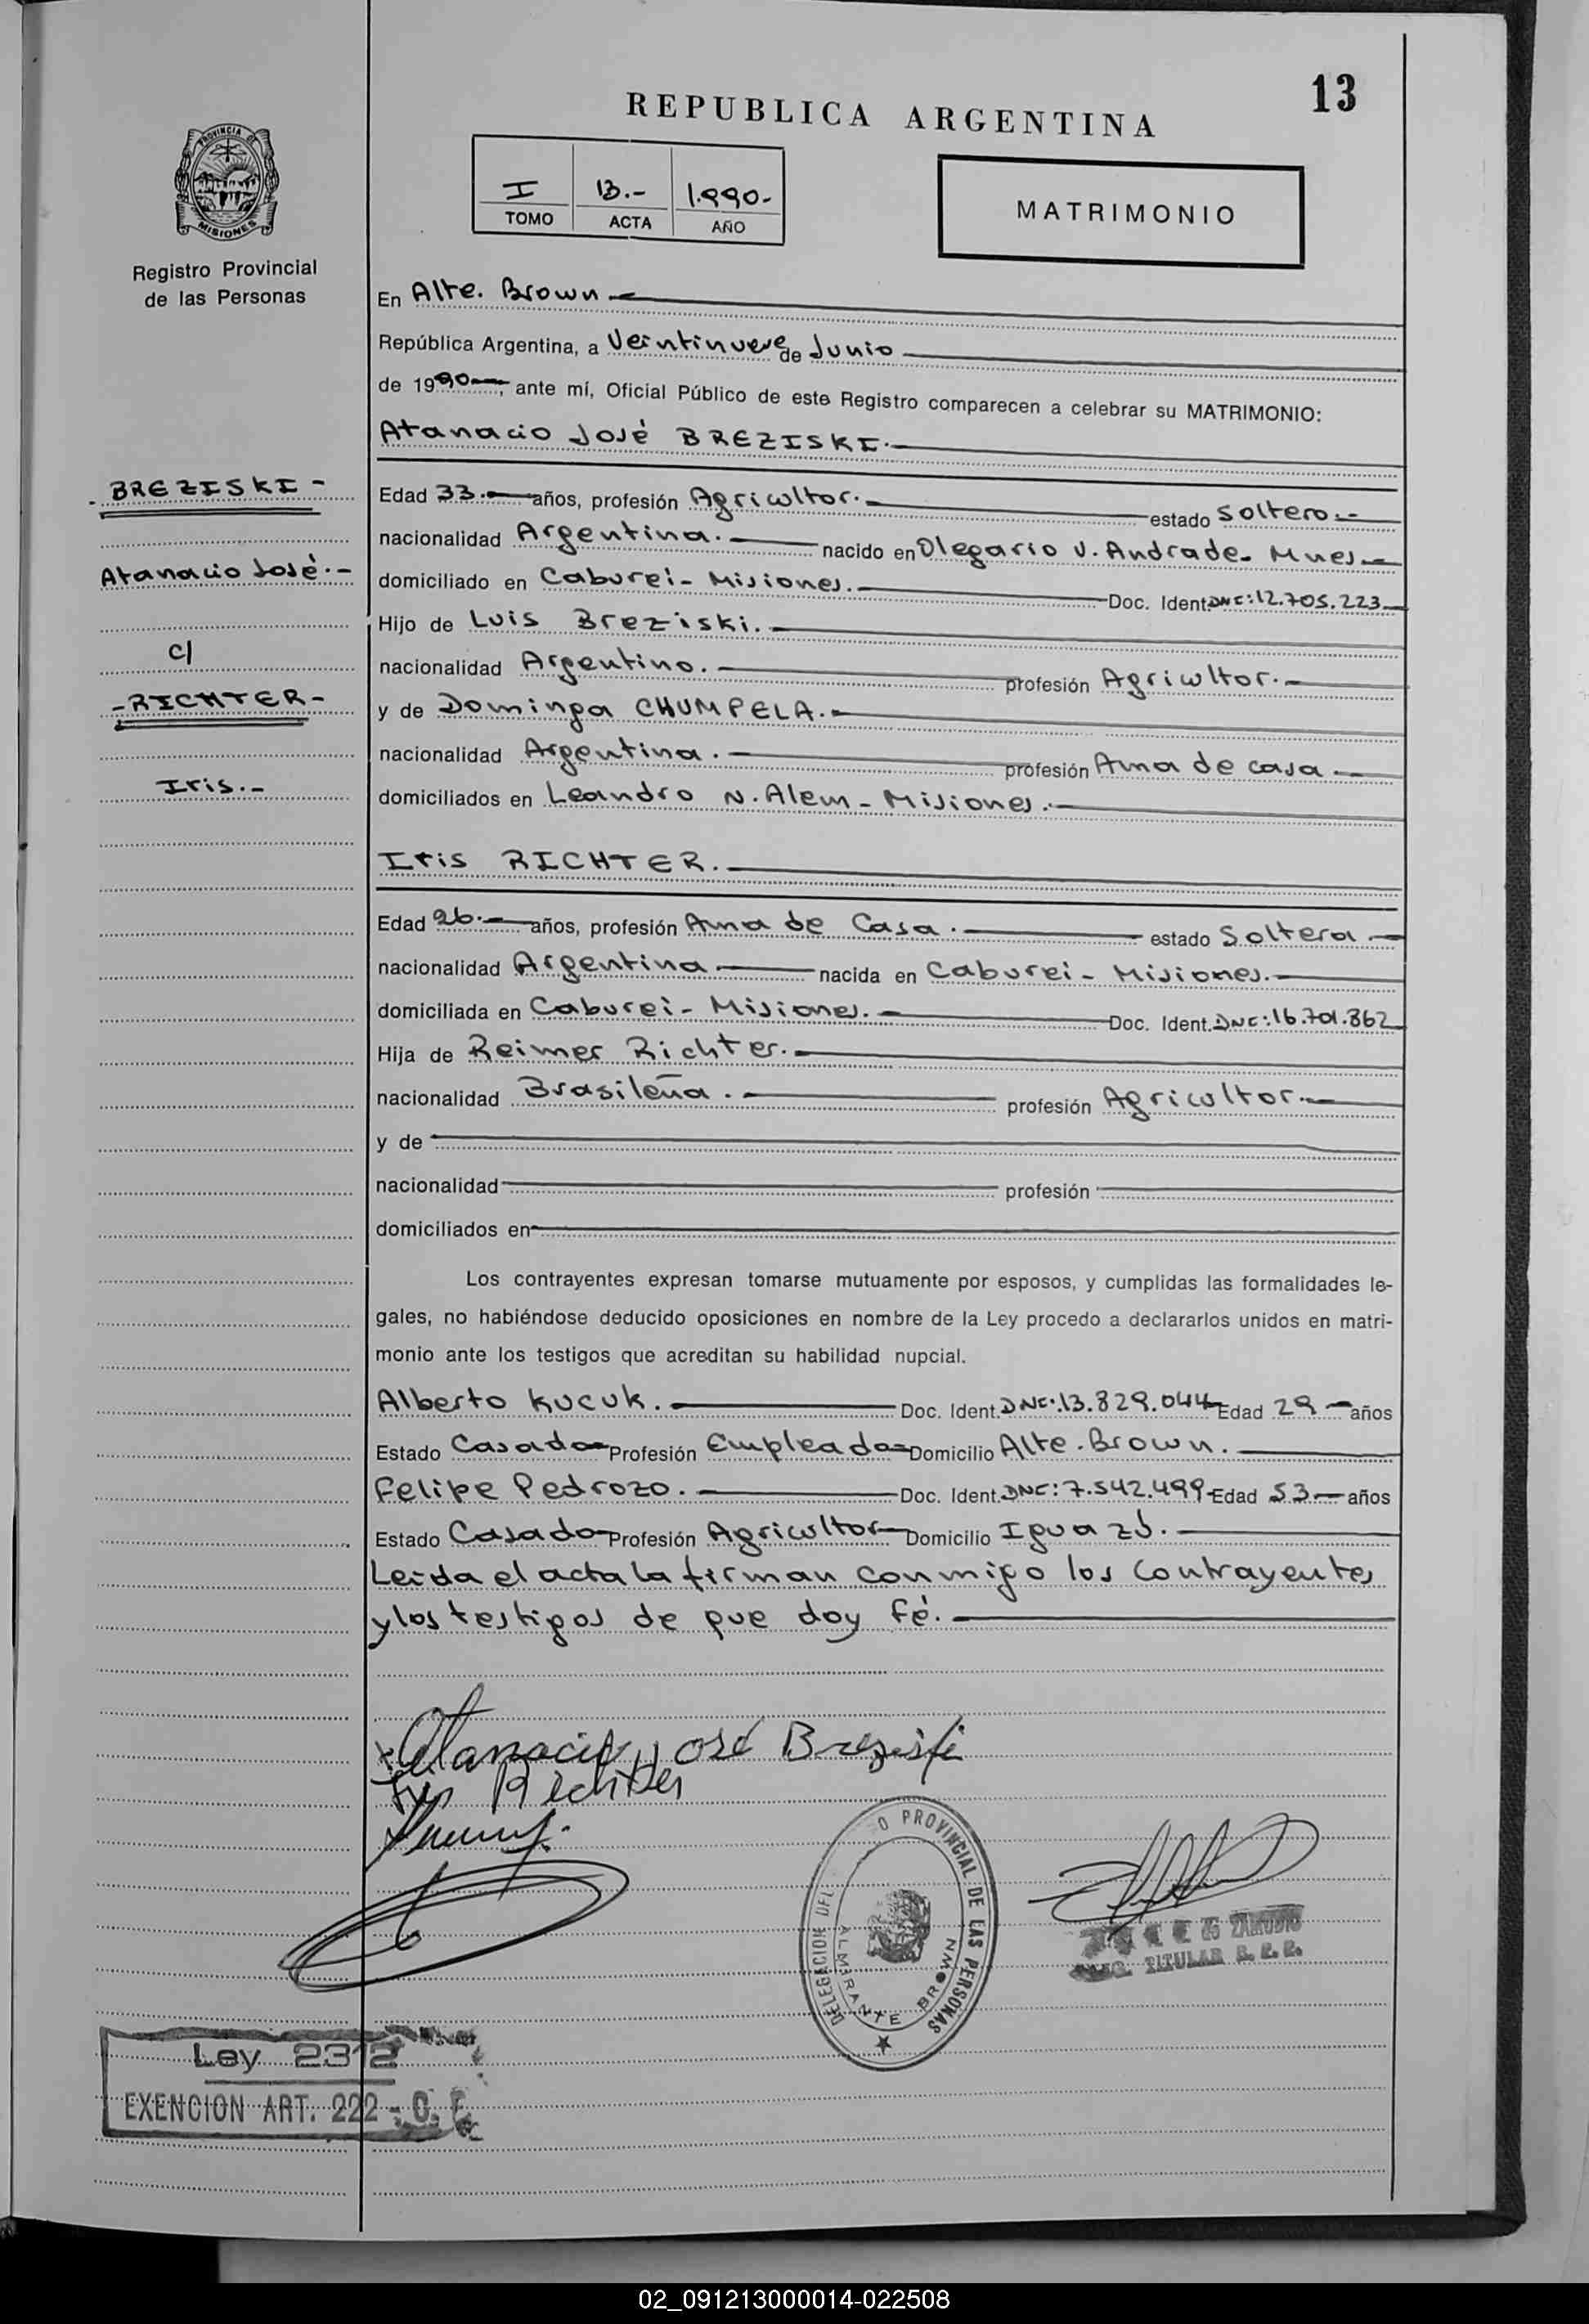 13
REPUBLICA ARGENTINA
PROVINCIA DE
MISIONES
I 13.- 1.990.-
TOMO ACTA AÑO
MATRIMONIO
Registro Provincial
de las Personas
En Alte. Brown
República Argentina, a Veintinueve de Junio
de 1990, ante mí, Oficial Público de este Registro comparecen a celebrar su MATRIMONIO:
Atanacio José BREZISKI.
BREZISKI -
Atanacio José.-
c/
-RICHTER-
Iris.-
Edad 33.- años, profesión Agricultor. estado Soltero.-
nacionalidad Argentina. nacido en Olegario V. Andrade- Mnes
domiciliado en Caburei- Misiones. Doc. Ident. DNI: 12.705.223
Hijo de Luis Breziski.
nacionalidad Argentino. profesión Agricultor.
y de Dominga CHUMPELA.
nacionalidad Argentina. profesión Ama de casa
domiciliados en Leandro N. Alem - Misiones.
Iris RICHTER.
Edad 26.- años, profesión Ama de Casa. estado Soltera
nacionalidad Argentina nacida en Caburei- Misiones.
domiciliada en Caburei- Misiones. Doc. Ident. DNI: 16.701.862
Hija de Reimer Richter.
nacionalidad Brasileña. profesión Agricultor.
y de
nacionalidad profesión
domiciliados en
Los contrayentes expresan tomarse mutuamente por esposos, y cumplidas las formalidades le-
gales, no habiéndose deducido oposiciones en nombre de la Ley procedo a declararlos unidos en matri-
monio ante los testigos que acreditan su habilidad nupcial.
Alberto Kucuk. Doc. Ident. DNI: 13.829.044 Edad 29 años
Estado Casado Profesión Empleado Domicilio Alte. Brown.
Felipe Pedrozo. Doc. Ident. DNI: 7.542.499 Edad 53 años
Estado Casado Profesión Agricultor Domicilio Iguazú.
Leida el acta la firman conmigo los Contrayentes
y los testigos de que doy fé.
Atanacio José Breziski
Richter
DELEGACION DEL PROVINCIAL DE LAS PERSONAS
ALMIRANTE BROWN
ZAMUDIO
TITULAR
Ley 2312
EXENCION ART. 222 -
02_091213000014-022508